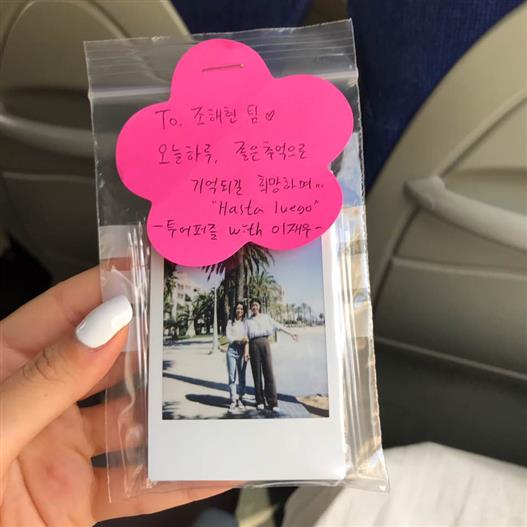 To. 조해현 팀♡
오늘하루, 좋은추억으로
기억되길 희망하며...
"Hasta luego"
-투어퍼즐 with 이재우-